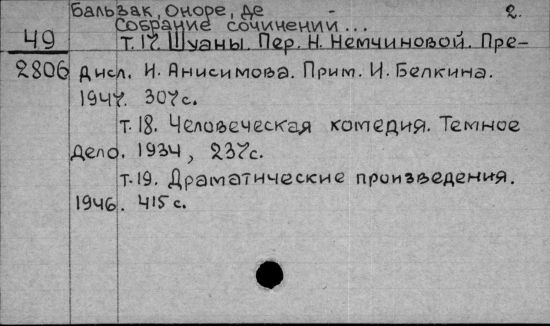 Бальзак, Оноре, де 2.
Собрание сочинений...
49 т.17. Шуаны. Пер. Н. Немчиновой. Пре-
2806 дисл. И. Анисимова. Прим. И. Белкина.
1947. 307с.
т.18. Человеческая комедия. Темное
дело. 1934, 237с.
т.19. Драматические произведения.
1946. 415с.